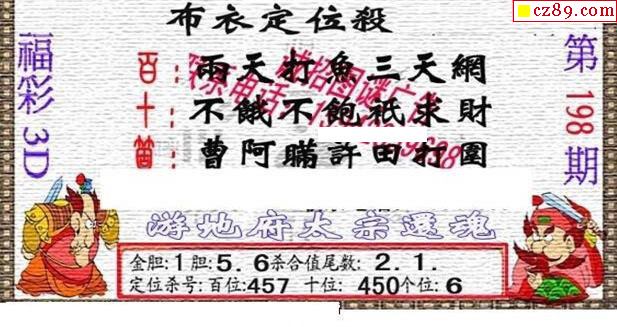 cz89.com
布衣定位殺
福彩3D
第198期
百：兩天打魚三天網
十：不餓不飽祇求財
箇：曹阿瞞許田打圍
游地府太宗還魂
金胆:1胆:5.6杀合值尾数: 2.1.
定位杀号:百位:457 十位: 450个位:6